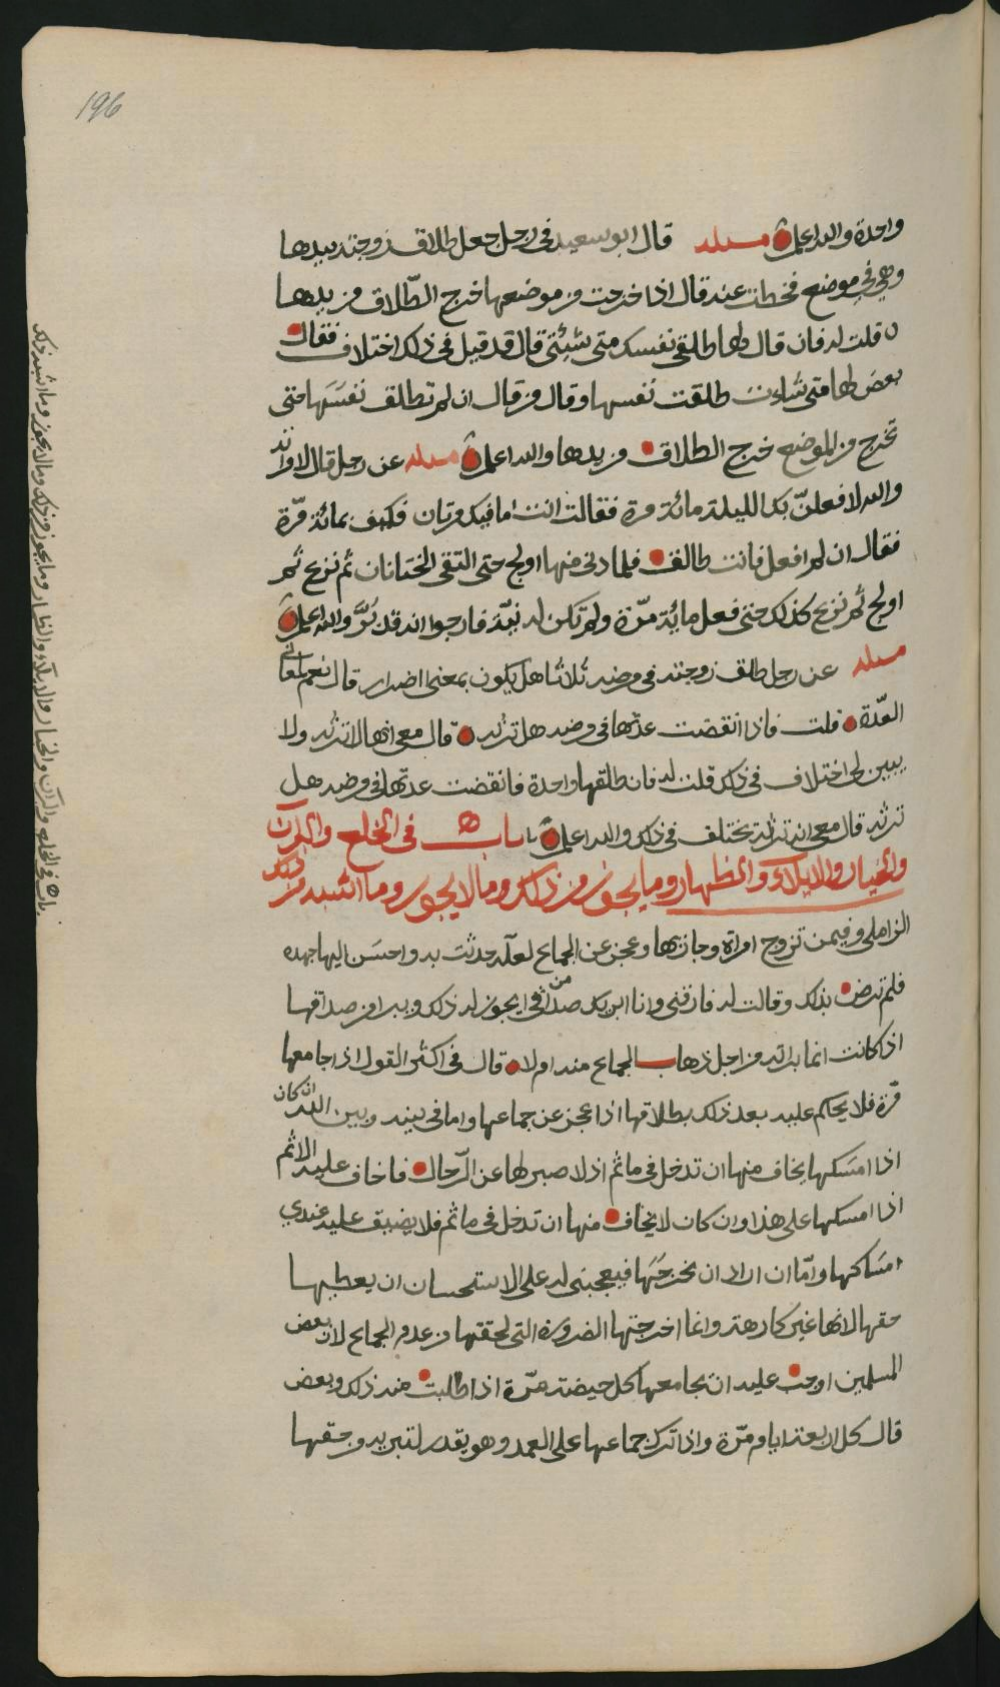 196
واحدة والله اعلم مسئله قال ابو سعيد في رجل جعل طلاق زوجته بيدها
وهي في موضع فخطات عنه قال اذا خرجت من موضعها خرج الطّلاق من يدها
قلت له فان قال لها طلقي نفسك متى شئتي قال قد قيل في ذلك اختلاف فقال
بعض لها متى شاءت طلقت نفسها وقال من قال ان لم تطلق نفسَها حتى
تخرج من الموضع خرج الطلاق من يدها والله اعلم مسئله عن رجل قال لامراته
والله لافعلنّ بك الليلة مائة مرة فقالت انت اما فيك مرتان فكيف بمائة مرّة
فقال ان لم افعل فانت طالق فلما دنى منها اولج حتى التقى الختانان ثم نزع ثم
اولج ثم نزع كذلك حتى فعل مائة مرّة ولم تكن له نيّة فارجوا انه قد بُرَّ والله اعلم
مسئله عن رجل طلق زوجته في مرضه ثلاثا هل يكون بمعنى اضرار قال نعم لمعانى
العدّة قلت فاذا انقضت عدّتها في مرضه هل ترثه قال معي انها لا ترثه ولا
يبين لي اختلاف في ذلك قلت له فان طلقها واحدة فانقضت عدتها في مرضه هل
ترثه قال معي انه ترثه يختلف في ذلك والله اعلم باب في الخلع والبرآن
والخيار والايلاء والظهار وما يجوز من ذلك وما لا يجوز وما اشبه ذلك
الزاملي وفيمن تزوج امراة وجاز بها وعجز عن الجماع لعلّه حدثت به واحسَن اليها جهده
فلم ترض بذلك وقالت له فارقني وانا ابريك من صداقي ايجوز له ذلك ويبرا من صداقها
اذا كانت انما برائته من اجل ذهاب الجماع منه ام لا قال في اكثر القول اذا جامعها
مرّة فلا يحكم عليه بعد ذلك بطلاقها اذا عجز عن جماعها واما في بينه وبين الله ان كان
اذا امسَكها يخاف منها ان تدخل في ماثم اذ لا صبر لها عن الرّجال فاخاف عليه الاثم
اذا امسكها على هذا وان كان لا يخاف منها ان تدخل في ماثم فلا يضيق عليه عندي
امسَاكها وامّا ان اراد ان يخرجَها فيعجبني له على الاستحسان ان يعطيها
حقها لانها غير كارهة وانما اخرجتها الضرورة التي لحقتها من عدم الجماع لان بعض
المسلمين اوجب عليه ان يجامعها كل حيضة مرّة اذا طلبت منه ذلك وبعض
قال كل اربعة ايام مرّة واذا ترك جماعها على العمد وهو يقدر لتبريه من حقها
باب في الخلع والبرآن والخيار والايلاء والظهار وما يجوز من ذلك وما لا يجوز وما اشبه ذلك